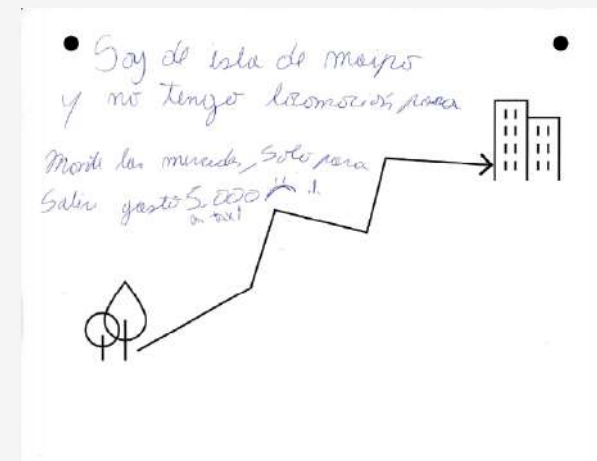 Soy de isla de maipo
y no tengo locomoción para
Monte las mercedes, solo para
Salir gasto 5.000
en taxi